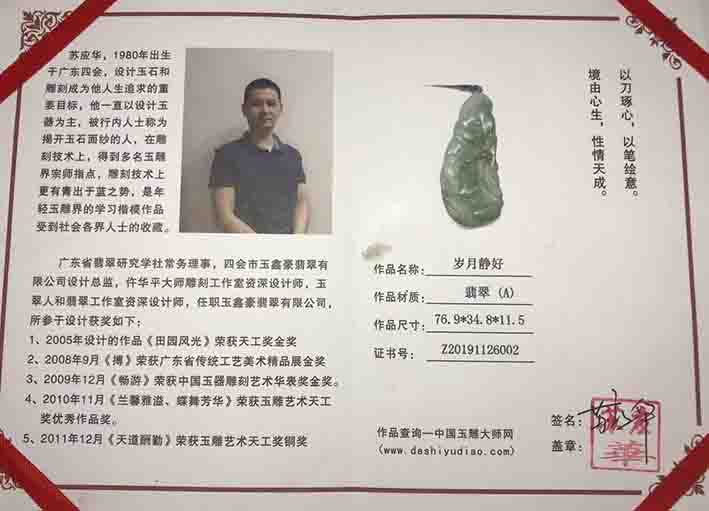 苏应华，1980年出生
于广东四会，设计玉石和
雕刻成为他人生追求的重
要目标，他一直以设计玉
器为主，被行内人士称为
揭开玉石面纱的人，在雕
刻技术上，得到多名玉雕
界宗师指点，雕刻技术上
更有青出于蓝之势，是年
轻玉雕界的学习楷模作品
受到社会各界人士的收藏。
广东省翡翠研究学社常务理事，四会市玉鑫豪翡翠有
限公司设计总监，仵华平大师雕刻工作室资深设计师，玉
翠人和翡翠工作室资深设计师，任职玉鑫豪翡翠有限公司，
所参于设计获奖如下：
1、2005年设计的作品《田园风光》荣获天工奖金奖
2、2008年9月《搏》荣获广东省传统工艺美术精品展金奖
3、2009年12月《畅游》荣获中国玉器雕刻艺术华表奖金奖。
4、2010年11月《兰馨雅溢、蝶舞芳华》荣获玉雕艺术天工
奖优秀作品奖。
5、2011年12月《天道酬勤》荣获玉雕艺术天工奖铜奖
以刀琢心，以笔绘意。
境由心生，性情天成。
作品名称：岁月静好
作品材质：翡翠（A）
作品尺寸：76.9*34.8*11.5
证书号：Z20191126002
作品查询—中国玉雕大师网
(www.dashiyudiao.com)
签名：
盖章：
華